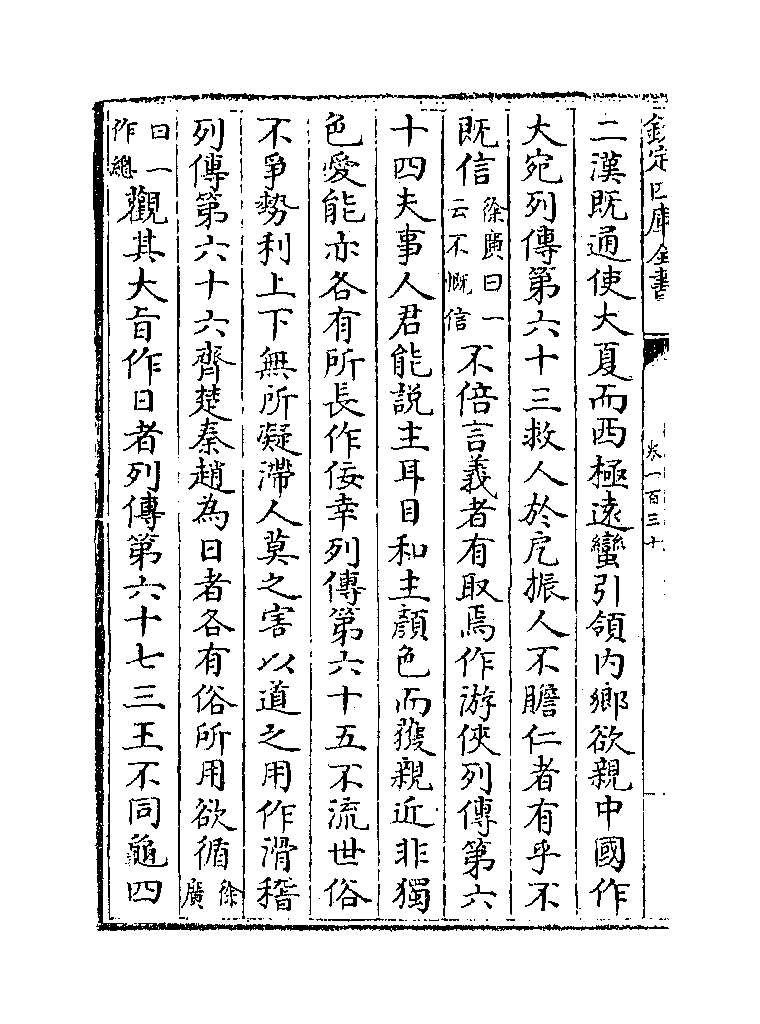 欽定四庫全書
卷一百三十
二漢既通使大夏而西極遠蠻引領內鄉欲親中國作
大宛列傳第六十三救人於戹振人不贍仁者有乎不
既信徐廣曰一云不慨信不倍言義者有取焉作游俠列傳第六
十四夫事人君能說主耳目和主顏色而獲親近非獨
色愛能亦各有所長作佞幸列傳第六十五不流世俗
不爭勢利上下無所凝滯人莫之害以道之用作滑稽
列傳第六十六齊楚秦趙為日者各有俗所用欲循徐廣
曰一作總觀其大旨作日者列傳第六十七三王不同龜四